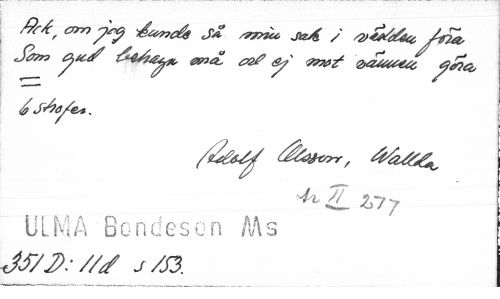 Ack, om jog kunde så min sak i världen föra
Som gud behaga må od ej mot vännen göra
=
6 strofer.
Adolf Olsson, Wallda
nr II 277
ULMA Bondeson Ms
351 D: 11d s 153.